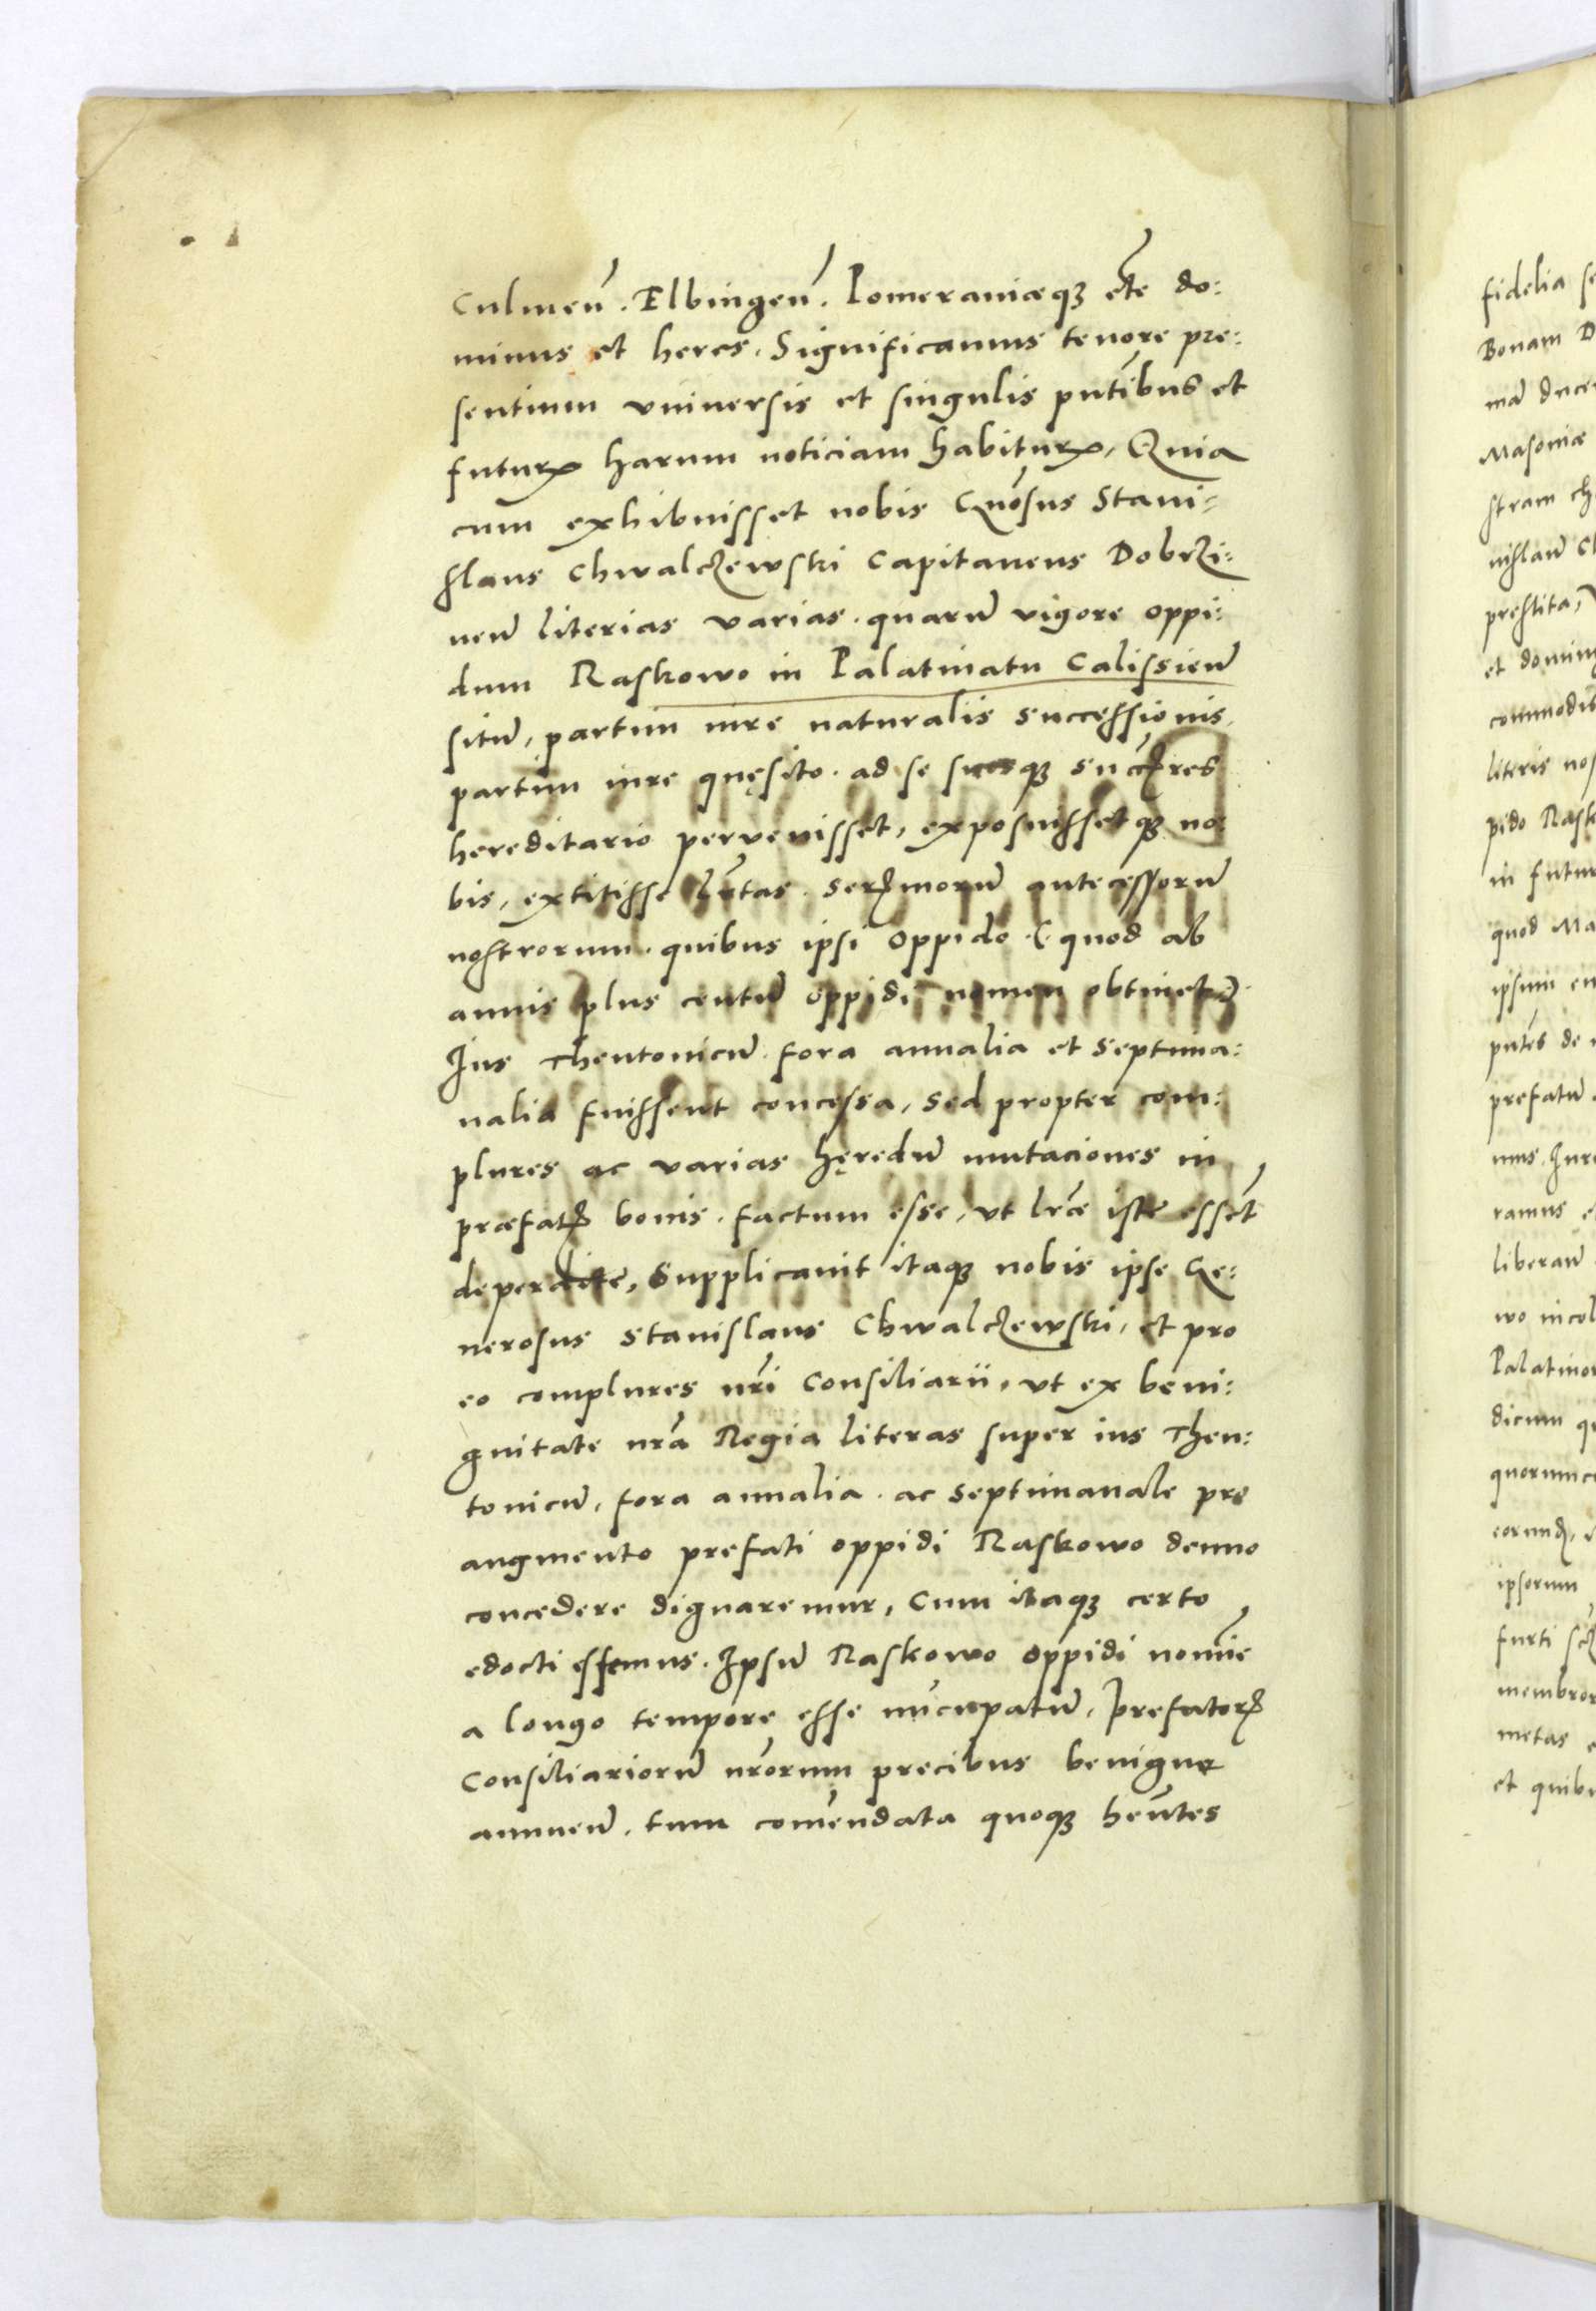 Culmeñ. Elbingeñ. Pomeraniæq3 etc̃ do:
minus et heres. Significamus tenore pre:
sentium vniuersis et singulis pñtibus et
futurꝭ harum noticiam habiturꝭ, Quia
cum exhibuisset nobis Gñosus Stani:
slaus Chwalczewski Capitaneus Dobrzi:
neñ literias varias. quarũ vigore oppi:
dum Raskowo in Palatinatu Calissieñ
sitũ, partim iure naturalis successionis,
partim iure quęsito. ad se suosq3
hereditario pervenisset, exposuissetq3 no:
bis, extitisse lr̃tas. antecessorũ
nostrorum. quibus ipsi oppido (quod ab
annis plus centũ oppidi nomen obtinet)
Jus Theutonicũ. fora annalia et septima:
nalia fuissent concessa, sed propter com:
plures ac varias hęredũ mutaciones in
præfatꝭ bonis. factum esse, vt lr̃æ iste essẽt
deperdite, Supplicauit itaq3 nobis ipse Ge:
nerosus Stanislaus Chwalczewski, et pro
eo complures nr̃i Consiliarii, vt ex beni:
gnitate nr̃a Regia literas super ius Theu:
tonicũ, fora annalia. ac septimanale pro
augmento prefati oppidi Raskowo denuo
concedere dignaremur, Cum itaq3 certo
edocti essemus. Ipsũ Raskowo oppidi nomĩe
a longo tempore esse nũcupatũ, prefatorꝭ
Consiliariorũ nr̃orum precibus benigne
annueñ. tum com̃endata quoq3 hen̄tes
fidelia
Bonam
Masoniæ
stram
prestita,
commodi
literis
pido
quod
ipsum
prefatũ
ramus
liberam
wo
dicum
ipsorum
furti
metas